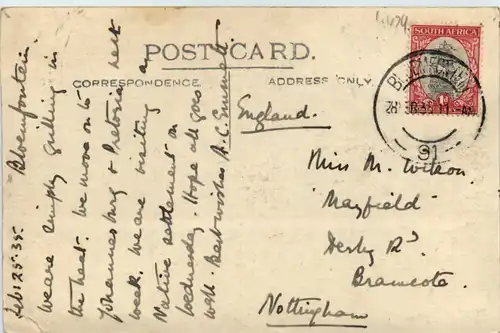 4479
SOUTH AFRICA
POST CARD.
CORRESPONDENCE
ADDRESS ONLY.
91
Feb: 25. 35. Bloemfontein.
We are simply grilling in
the heat. We move on to
Johannesburg & Pretoria next
week. We are visiting a
Native settlement on
Wednesday. Hope all goes
well. Best wishes A. C. Emmett
England.
Miss M. Wilson
Mayfield
Derby Rd
Bramcote.
Nottingham